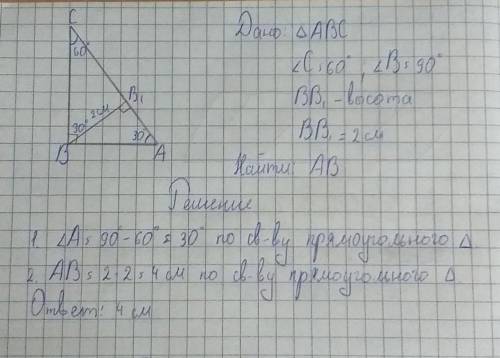 C
60°
B₁
2 см
90°
30°
B
A
Дано: △ABC
∠C=60°, ∠B=90°
BB₁ - высота
BB₁ = 2 см
Найти: AB
Решение
1. ∠A = 90° - 60° = 30° по св-ву прямоугольного △.
2. AB = 2 · 2 = 4 см по св-ву прямоугольного △
Ответ: 4 см